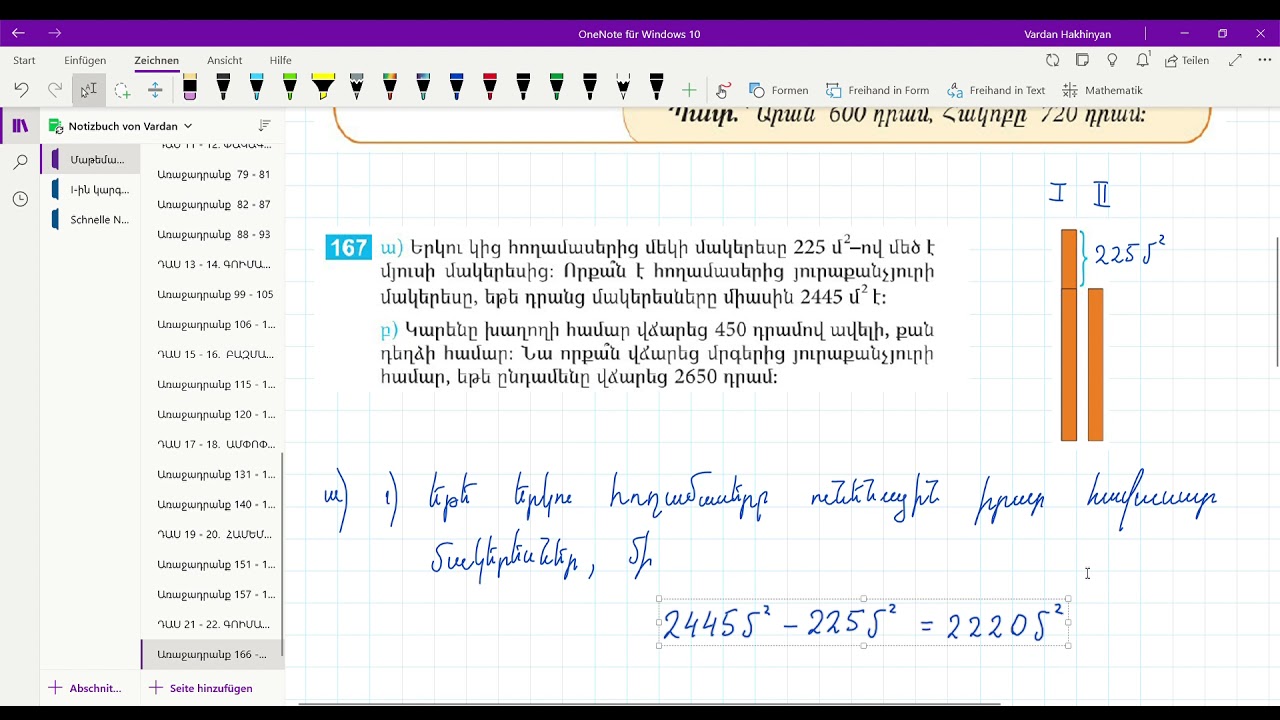 OneNote für Windows 10
Vardan Hakhinyan
Start Einfügen Zeichnen Ansicht Hilfe
Teilen
Formen Freihand in Form Freihand in Text Mathematik
Notizbuch von Vardan
Մաթեմա...
I-ին կարգ...
Schnelle N...
ԴԱՍ 11 - 12. ՓԱԿԱԳ...
Առաջադրանք 79 - 81
Առաջադրանք 82 - 87
Առաջադրանք 88 - 93
ԴԱՍ 13 - 14. ԳՈՒՄԱ...
Առաջադրանք 99 - 105
Առաջադրանք 106 - 1...
ԴԱՍ 15 - 16. ԲԱԶՄԱ...
Առաջադրանք 115 - 1...
Առաջադրանք 120 - 1...
ԴԱՍ 17 - 18. ԱՄՓՈՓ...
Առաջադրանք 131 - 1...
Առաջադրանք 140 - 1...
ԴԱՍ 19 - 20. ՀԱՄԵՄ...
Առաջադրանք 151 - 1...
Առաջադրանք 157 - 1...
ԴԱՍ 21 - 22. ԳՈՒՄԱ...
Առաջադրանք 166 -...
Abschnit... Seite hinzufügen
Պատ.՝ Արան 600 դրամ, Հակոբը 720 դրամ:
I II
225 մ²
167 ա) Երկու կից հողամասերից մեկի մակերեսը 225 մ²–ով մեծ է
մյուսի մակերեսից: Որքա՞ն է հողամասերից յուրաքանչյուրի
մակերեսը, եթե դրանց մակերեսները միասին 2445 մ² է:
բ) Կարենը խաղողի համար վճարեց 450 դրամով ավելի, քան
դեղձի համար: Նա որքա՞ն վճարեց մրգերից յուրաքանչյուրի
համար, եթե ընդամենը վճարեց 2650 դրամ:
ա) 1) եթե երկու հողամասերը ունենային իրար հավասար
մակերեսներ, մի
2445մ² – 225մ² = 2220մ²